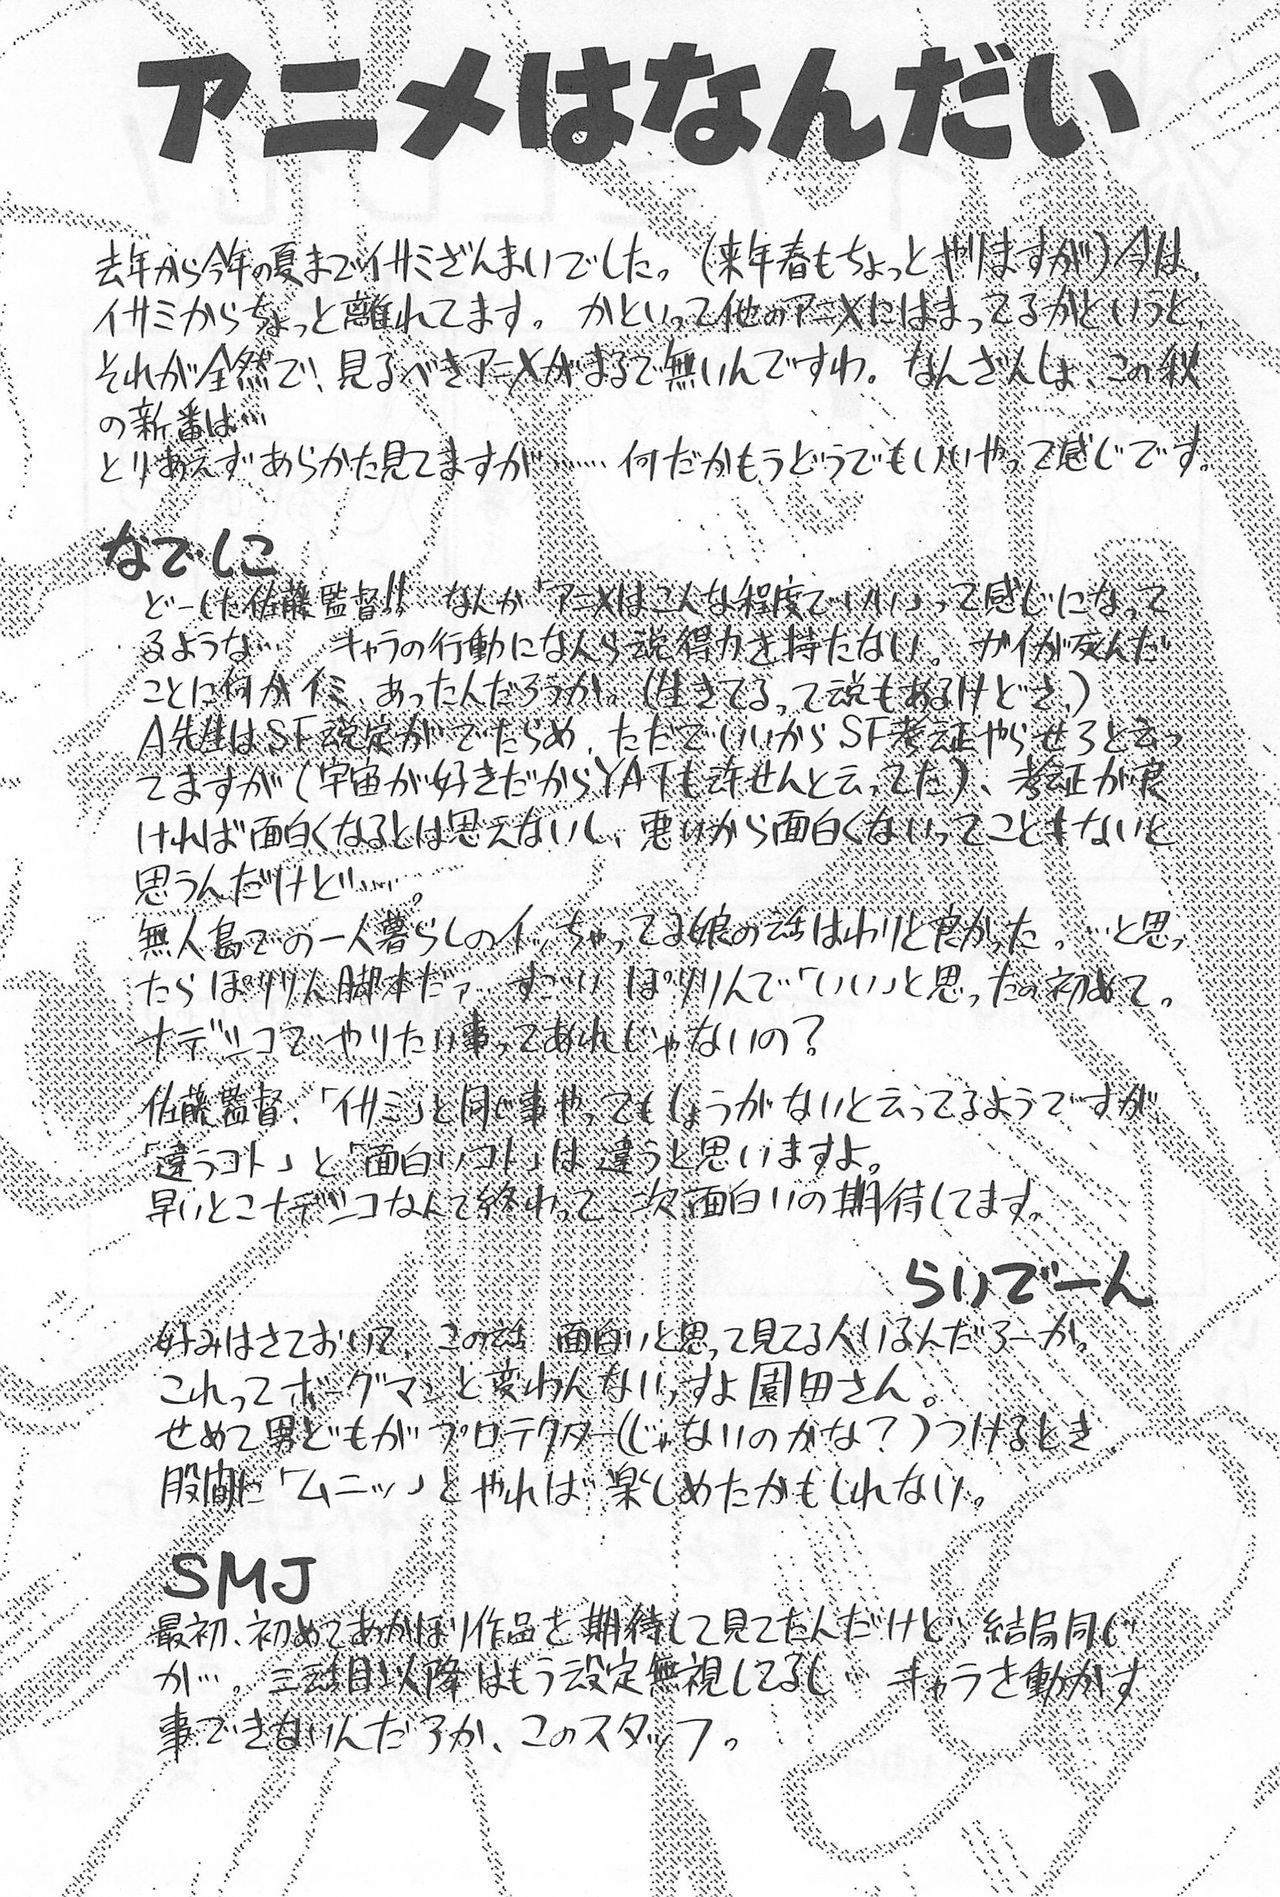 アニメはなんだい
去年から今年の夏までイサミざんまいでした。(来年春もちょっとやりますが)今は、
イサミからちょっと離れてます。かといって他のアニメにはまってるかというと、
それが全然で、見るべきアニメがまるで無いんですわ。なんざんしょ、この秋
の新番は…
とりあえずあらかた見てますが……何だかもうどうでもいいやって感じです。
なでしこ
どーした佐藤監督!! なんか「アニメはこんな程度でいい」って感じになって
るような… キャラの行動になんら説得力を持たない。ガイが死んだ
ことに何かイミ、あったんだろうか。(生きてるって説もあるけどさ、)
A先生はSF設定がでたらめ、ただでいいからSF考証やらせろと云っ
てますが(宇宙が好きだからYATも許せんと云ってた)、考証が良
ければ面白くなるとは思えないし、悪いから面白くないってこともないと
思うんだけど……。
無人島での一人暮らしのイッちゃってる娘の話はわりと良かった。…と思っ
たらぽりりん脚本だァ… すごい ぽりりんで「いい」と思ったの初めて。
ナデシコでやりたい事ってあれじゃないの?
佐藤監督、「イサミ」と同じ事やってもしょうがないと云ってるようですが
「違うコト」と「面白いコト」は違うと思いますよ。
早いとこナデシコなんて終わって、次面白いの期待してます。
らいでーん
好みはさておいて、この話 面白いと思って見てる人いるんだろーか。
これってボーグマンと変わんないっすよ園田さん。
せめて男どもがプロテクター(じゃないのかな?)つけるとき、
股間に「ムニッ」とやれば楽しめたかもしれない。
SMJ
最初、初めてあかほり作品を期待して見てたんだけど… 結局同じ
か…。三話目以降はもう設定無視してるし… キャラを動かす
事できないんだろか、このスタッフ。